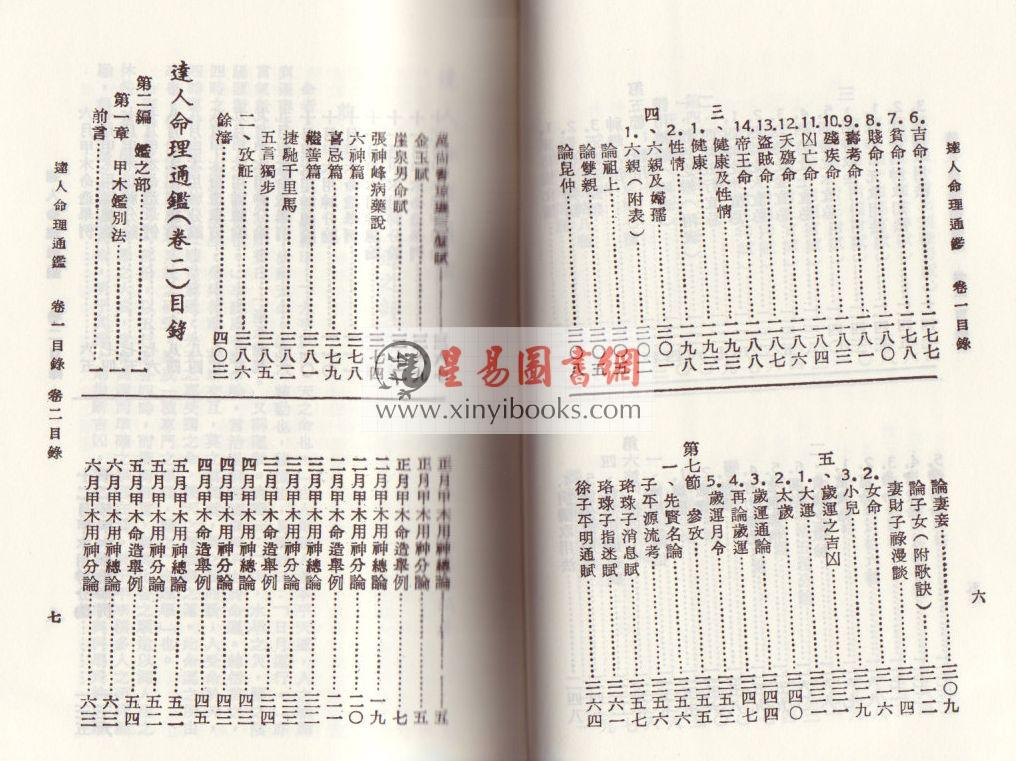 達人命理通鑑 卷一目錄
6.吉命……二七七
7.貧命……二七八
8.賤命……二八〇
9.壽考命……二八一
10.殘疾命……二八三
11.凶亡命……二八四
12.夭殤命……二八六
13.盜賊命……二八八
14.帝王命……二八八
三、健康及性情……二九三
1.健康……二九三
2.性情……二九八
四、六親及婦孺……三〇二
1.六親(附表)……三〇二
論祖上……三〇
論雙親……三〇五
論昆仲……三〇八
論妻妾……三〇九
論子女(附歌訣)……三一二
妻財子祿漫談……三一四
2.女命……三一六
3.小兒……三二九
五、歲運之吉凶……三三一
1.大運……三三一
2.太歲……三四〇
3.歲運通論……三四四
4.再論歲運……三四七
5.歲運月令……三五三
第七節 參攷……三五五
一、先賢名論……三五六
子平源流考……三五六
珞珠子消息賦……三五七
珞珠子指迷賦……三六一
徐子平明通賦……三六四
六
金玉賦
崖泉男命賦
張神峰病藥說……三七四
六神篇……三七七
喜忌篇……三七九
繼善篇……三八一
捷馳千里馬……三八二
五言獨步……三八五
二、攷証……三八六
餘瀋……四〇三
達人命理通鑑(卷二)目錄
第二編 鑑之部……一
第一章 甲木鑑別法……一
前言……一
正月甲木用神總論……五
正月甲木用神分論……五
正月甲木命造舉例……七
二月甲木用神總論……一九
二月甲木用神分論……二〇
二月甲木命造舉例……二一
三月甲木用神總論……三二
三月甲木用神分論……三三
三月甲木命造舉例……三四
四月甲木用神總論……四三
四月甲木用神分論……四三
四月甲木命造舉例……四五
五月甲木用神總論……五二
五月甲木用神分論……五二
五月甲木命造舉例……五四
六月甲木用神總論……六三
六月甲木用神分論……六三
達人命理通鑑 卷一目錄 卷二目錄
七
星易圖書網
www.xinyibooks.com